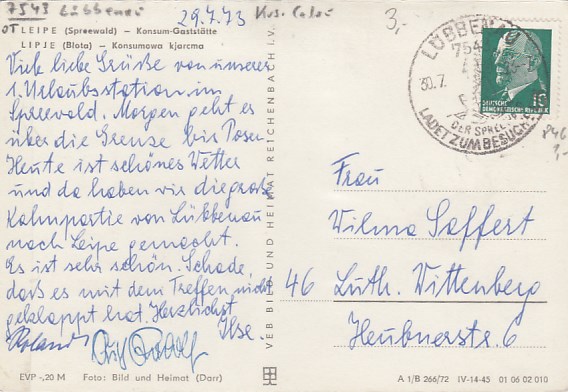 7543 Lübbenau
29.7.73 Krs. Calau
3,-
OT LEIPE (Spreewald) – Konsum-Gaststätte
LIPJE (Błota) – Konsumowa kjarcma
Viele liebe Grüße von unserer
1. Urlaubsstation im
Spreewald. Morgen geht es
über die Grenze bis Posen.
Heute ist schönes Wetter
und da haben wir die große
Kahnpartie von Lübbenau
nach Leipe gemacht.
Es ist sehr schön. Schade,
daß es mit dem Treffen nicht
geklappt hat. Herzlichst
Ilse.
Roland
EVP -,20 M Foto: Bild und Heimat (Darr)
VEB BILD UND HEIMAT REICHENBACH I. V.
LÜBBENAU
754
30.7.
DER SPREE
LADET ZUM BESUCH
DEUTSCHE
DEMOKRATISCHE REPUBLIK
10
846
1,-
Frau
Wilma Saffert
46 Luth. Wittenberg
Heubnerstr. 6
A 1/B 266/72 IV-14-45 01 06 02 010